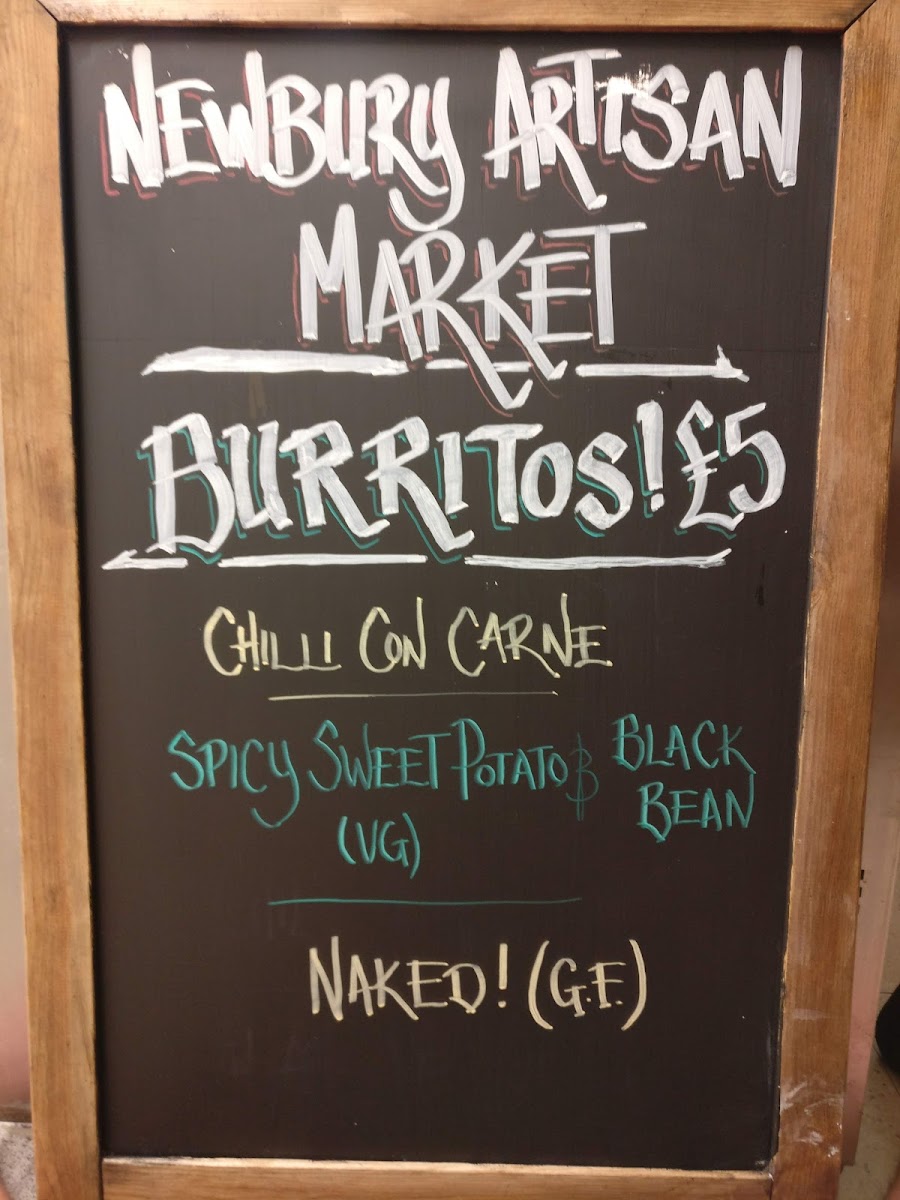 NEWBURY ARTISAN
MARKET
BURRITOS! £5
CHILLI CON CARNE
SPICY SWEET POTATO & BLACK
BEAN
(VG)
NAKED! (G.F.)